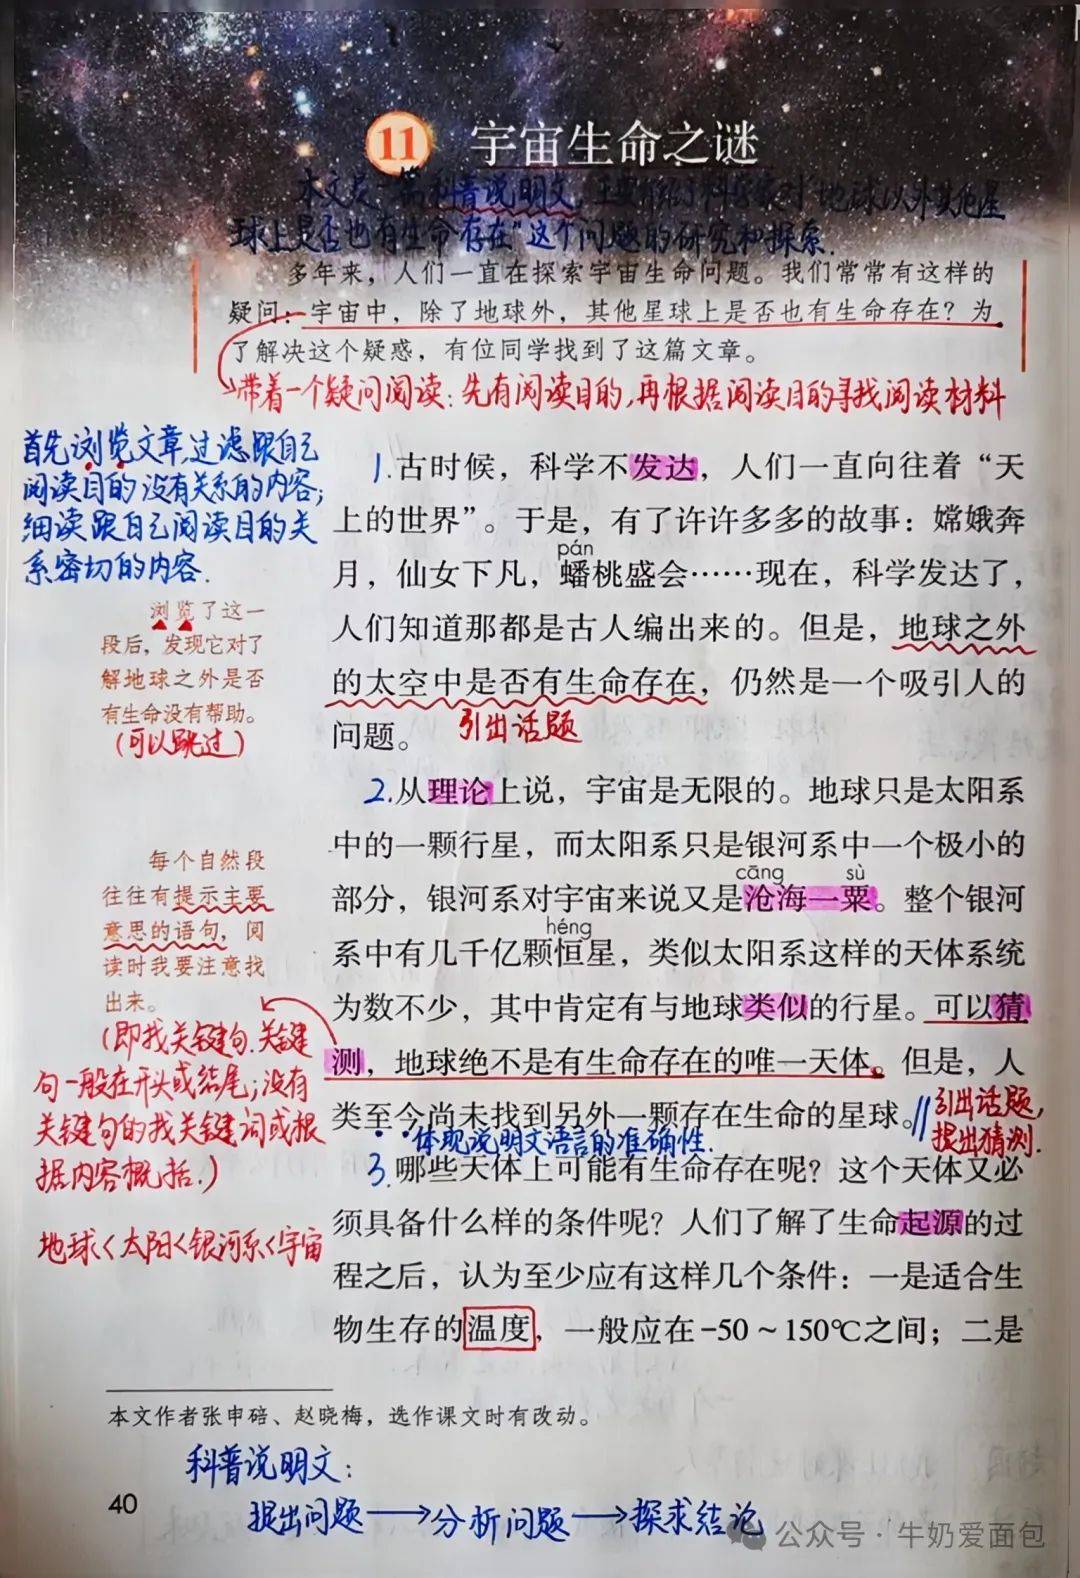 11 宇宙生命之谜
本文是一篇科普说明文,主要介绍了科学家对"地球以外其他星
球上是否也有生命存在"这个问题的研究和探索.
多年来，人们一直在探索宇宙生命问题。我们常常有这样的
疑问：宇宙中，除了地球外，其他星球上是否也有生命存在？为
了解决这个疑惑，有位同学找到了这篇文章。
带着一个疑问阅读:先有阅读目的,再根据阅读目的寻找阅读材料
首先浏览文章,过滤跟自己
阅读目的没有关系的内容;
细读跟自己阅读目的关
系密切的内容.
浏览了这一
段后，发现它对了
解地球之外是否
有生命没有帮助。
(可以跳过)
每个自然段
往往有提示主要
意思的语句，阅
读时我要注意找
出来。
(即找关键句.关键
句一般在开头或结尾;没有
关键句的找关键词或根
据内容概括.)
地球<太阳<银河系<宇宙
1.古时候，科学不发达，人们一直向往着“天
上的世界”。于是，有了许许多多的故事：嫦娥奔
pán
月，仙女下凡，蟠桃盛会……现在，科学发达了，
人们知道那都是古人编出来的。但是，地球之外
的太空中是否有生命存在，仍然是一个吸引人的
问题。 引出话题
2.从理论上说，宇宙是无限的。地球只是太阳系
中的一颗行星，而太阳系只是银河系中一个极小的
cāng sù
部分，银河系对宇宙来说又是沧海一粟。整个银河
héng
系中有几千亿颗恒星，类似太阳系这样的天体系统
为数不少，其中肯定有与地球类似的行星。可以猜
测，地球绝不是有生命存在的唯一天体。但是，人
类至今尚未找到另外一颗存在生命的星球。
引出话题,
提出猜测.
体现说明文语言的准确性.
3.哪些天体上可能有生命存在呢？这个天体又必
须具备什么样的条件呢？人们了解了生命起源的过
程之后，认为至少应有这样几个条件：一是适合生
物生存的温度，一般应在-50～150℃之间；二是
本文作者张申碚、赵晓梅，选作课文时有改动。
科普说明文:
提出问题→分析问题→探求结论
40
公众号·牛奶爱面包